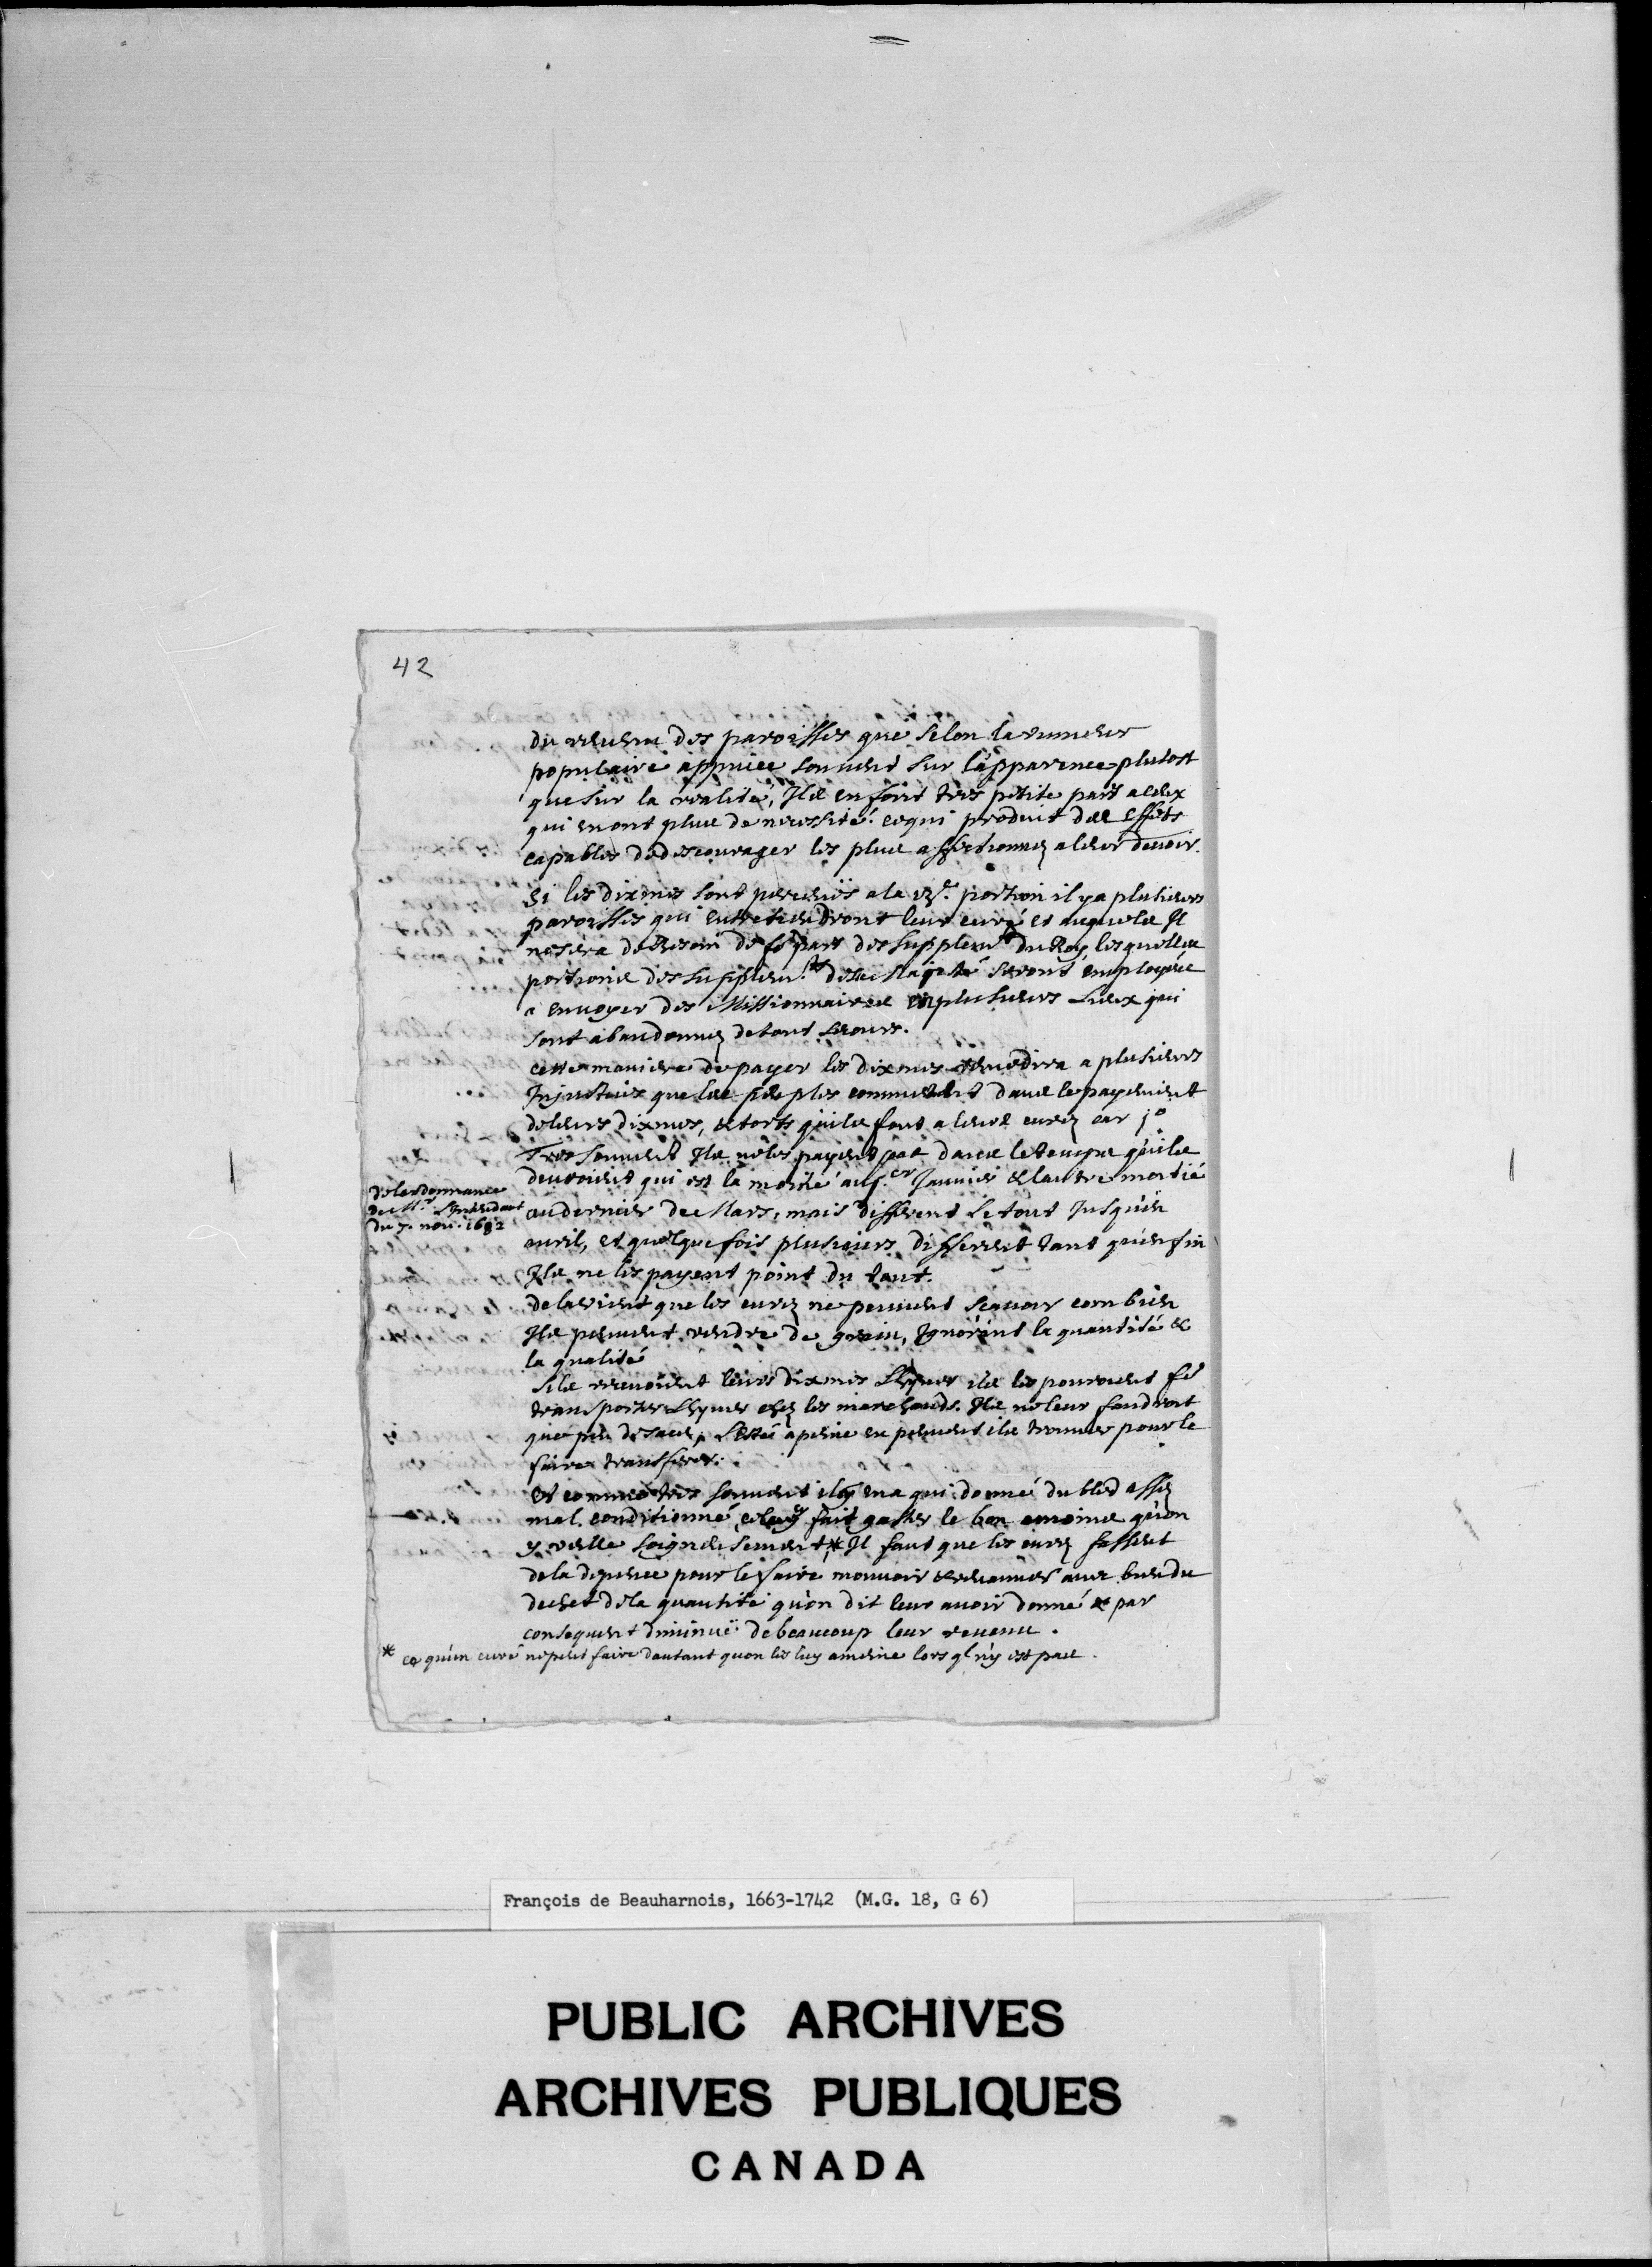 42
du revenu des paroisses que selon la rumeur
populaire appuiée souvent sur l'apparence plutost
que sur la realité, Ils en font tres petite part a ceux
qui en ont plus de necessité. ce qui produit des Effets
capables de descourager les plus affectionnez a leur devoir.
Si les dixmes sont perceuës a la 13e. portion il y a plusieurs
paroisses qui entretiendront leur curé et auquels Il
ne sera de besoin de fe part des supplemts du Roy, lesquelles
portions des supplemts. de sa Majesté seront employées
a envoyer des Missionnaires en plusieurs Lieux qui
sont abandonnez de tout secours.
cette maniere de payer les dixmes remedira a plusieurs
Injustices que les peuples commettent dans le payement
de leurs dixmes, & torts qu'ils font a leurs curez car 1o
Tres souvent Ils ne les payent pas dans le temps qu'ils
devroient qui est la moitié au 1.er Janvier & l'autre moitié
au dernier de Mars, mais different le tout Jusqu'en
avril, et quelque fois plusieurs different tant qu'enfin
Ils ne les payent point du tout.
de l'ordonnance
de Mr. L'Intendant
du 7. nov. 1682
de la vient que les curez ne peuvent sçavoir combien
Ils peuvent vendre de grain, Ignorant la quantité &
la qualité
Sils recevoient leurs dixmes L'hyver ils les pouroient fe
transporter L'hyver chez les marchands. Ils ne leur faudroit
que peu de sacs, L'Esté a peine en peuvent ils trouver pour le
faire transferer.
Et comme tres souvent il y en a qui donne du bled assez
mal conditionné, celuy fait gaster le bon amoins qu'on
y veille soigneusement* Il faut que les curez fassent
de la depense pour le faire mouvoir & revanner avec bien du
dechet de la quantité qu'on dit leur avoir donné & par
consequent diminuë de beaucoup leur revenu.
* ce qu'un curé ne peut faire dautant quon les luy ameine lors ql n'y est pas.
François de Beauharnois, 1663-1742 (M.G. 18, G 6)
PUBLIC ARCHIVES
ARCHIVES PUBLIQUES
CANADA